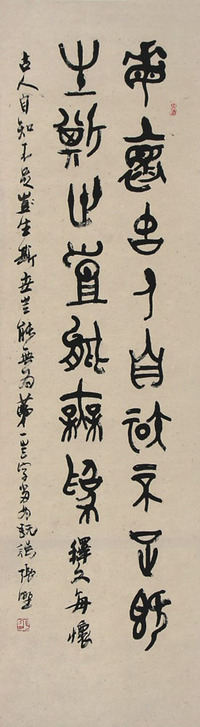 每懷古人自知不足既
生斯世豈能無為 釋文每懷
古人自知不足豈生斯世豈能無為第一豈字當為既 張